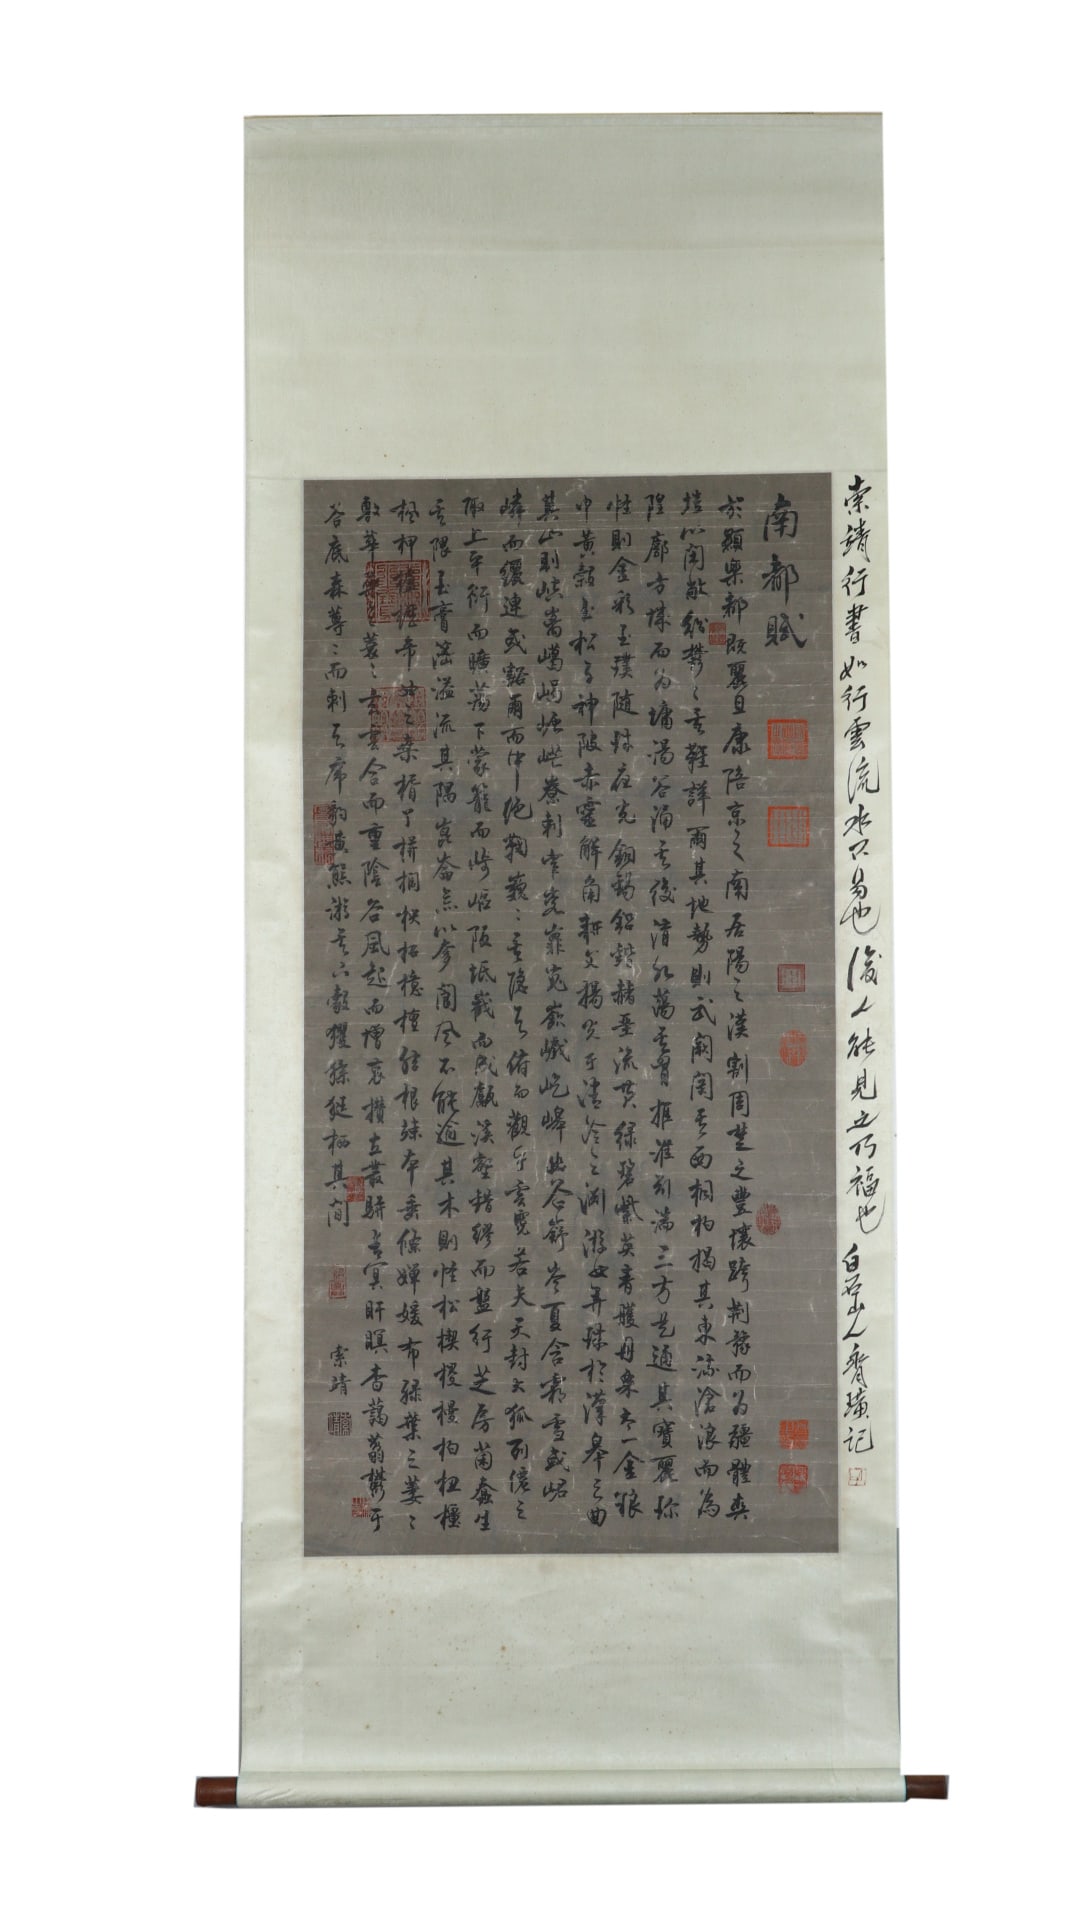 索靖行書如行雲流水不易也後人能見之乃福也白石山人齊璜記
南都賦
於顯樂都既麗且康陪京之南居陽之漢割周楚之豐壤跨荊豫而為疆體爽
塏以閑敞紛鬱鬱其難詳爾其地勢則武闕關其西桐柏揭其東流滄浪而為
隍廓方城而為墉湯谷涌其後淯水蕩其胷推淮引湍三方是通其寶麗珍
怪則金彩玉璞隨珠夜光銅錫鉛鍇赭堊流黃綠碧紫英青雘丹粟太一金粮
中黃瑴玉松子神陂赤靈解角耕父揚光于清泠之淵游女弄珠於漢皋之曲
其山則崆㟅嶱嵑嵣㟐嶚剌岝㟯嶊嵬嶔巇屹㠔幽谷嶜岑夏含霜雪或峮
嶙而纚連或豁爾而中絕鞠巍巍其隱天俯而觀乎雲霓若夫天封大狐列僊之
陬上平衍而曠蕩下蒙籠而崎嶇阪坻嶻而成甗溪壑錯繆而盤紆芝房菌蠢生
其隈玉膏滵溢流其隅崑崙無以奓閬風不能逾其木則檉松楔㮨槾柏杻橿
楓柙櫨櫪帝女之桑楈枒栟櫚柍柘檍檀結根竦本垂條嬋媛布綠葉之萋萋
敷華蘂之蓑蓑玄雲合而重陰谷風起而增哀攢立叢駢青冥盰瞑杳藹蓊鬱于
谷底森蓴蓴而刺天虎豹黃熊游其下㲉玃猱㹶栖其間
索靖